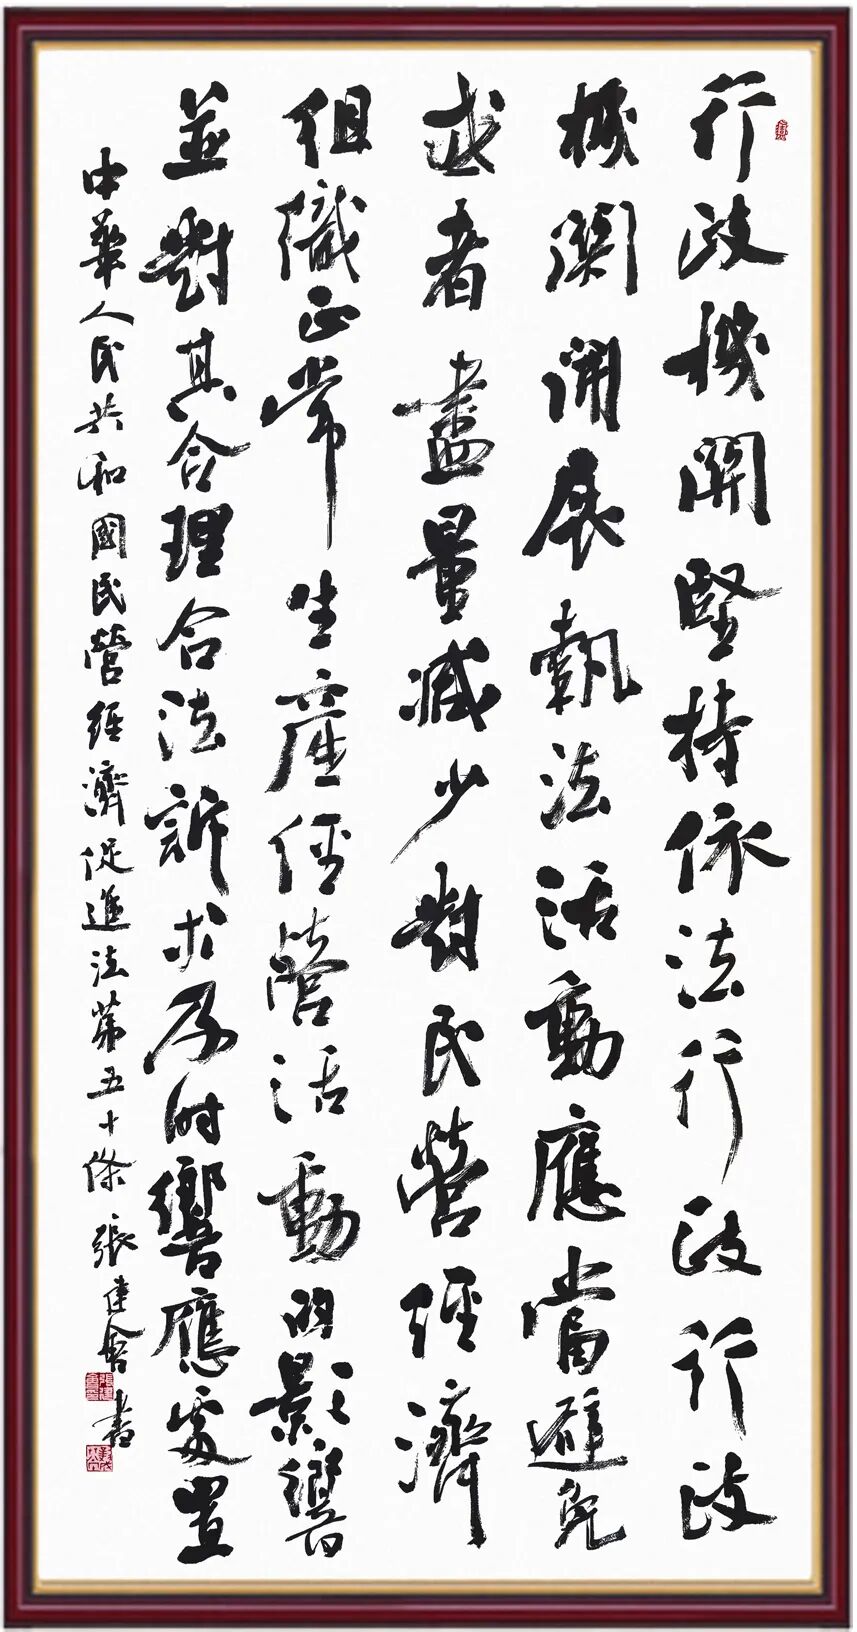 行政機關堅持依法行政行政
機關開展執法活動應當避免
或者盡量減少對民營經濟
組織正常生產經營活動的影響
並對其合理合法訴求及時響應處置
中華人民共和國民營經濟促進法第五十條 張建會書